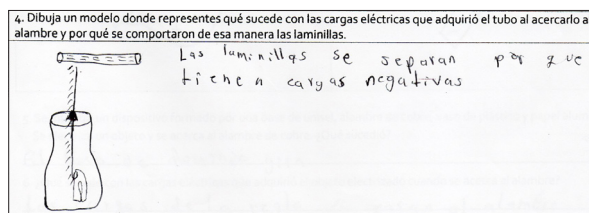 4. Dibuja un modelo donde representes qué sucede con las cargas eléctricas que adquirió el tubo al acercarlo a
alambre y por qué se comportaron de esa manera las laminillas.
Las laminillas se separan por que
tienen cargas negativas